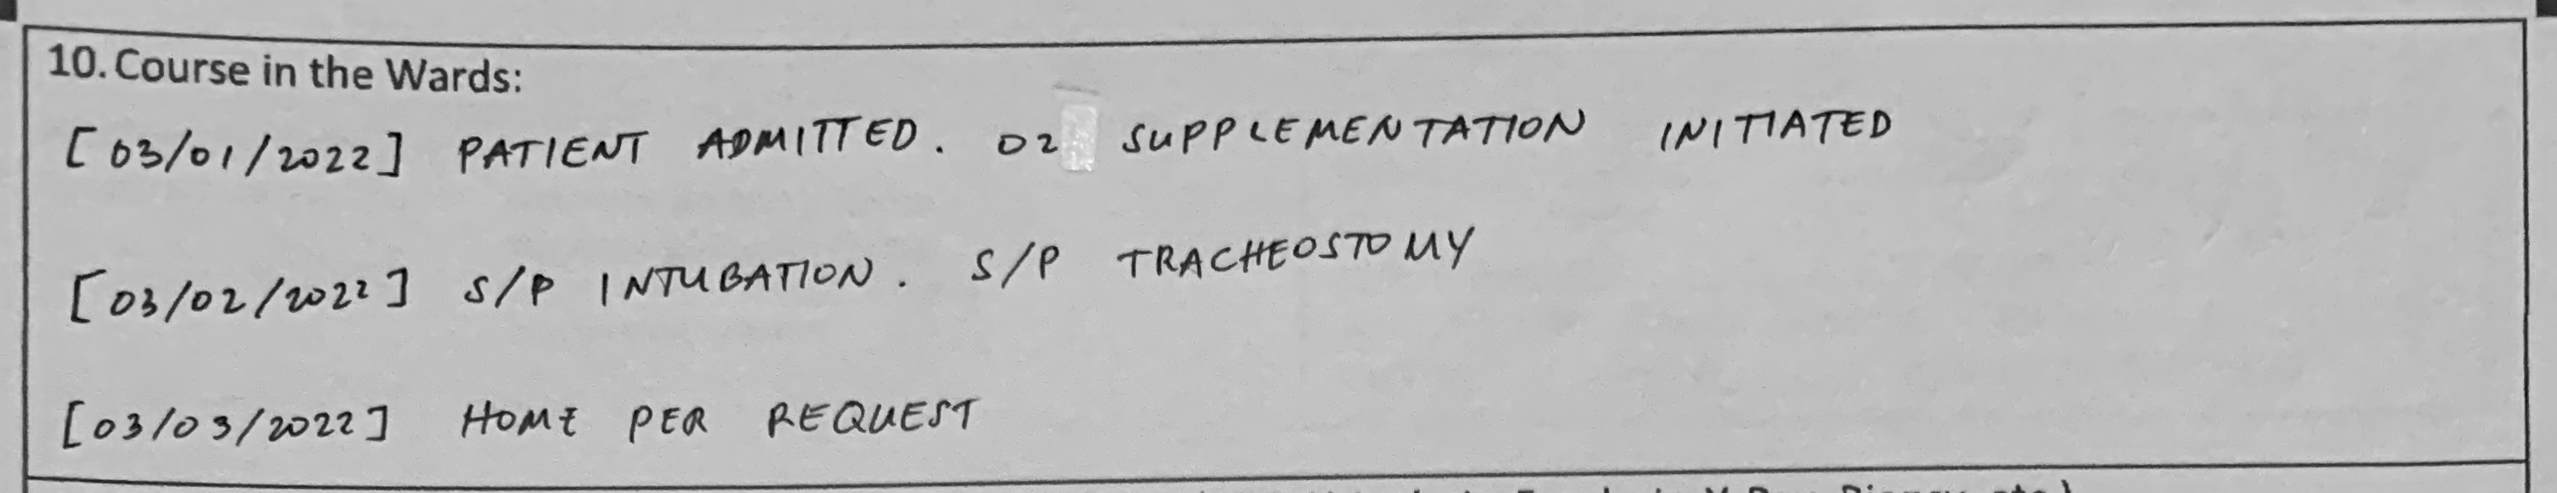 10. Course in the Wards:
[03/01/2022] PATIENT ADMITTED. O2 SUPPLEMENTATION INITIATED
[03/02/2022] S/P INTUBATION. S/P TRACHEOSTOMY
[03/03/2022] HOME PER REQUEST